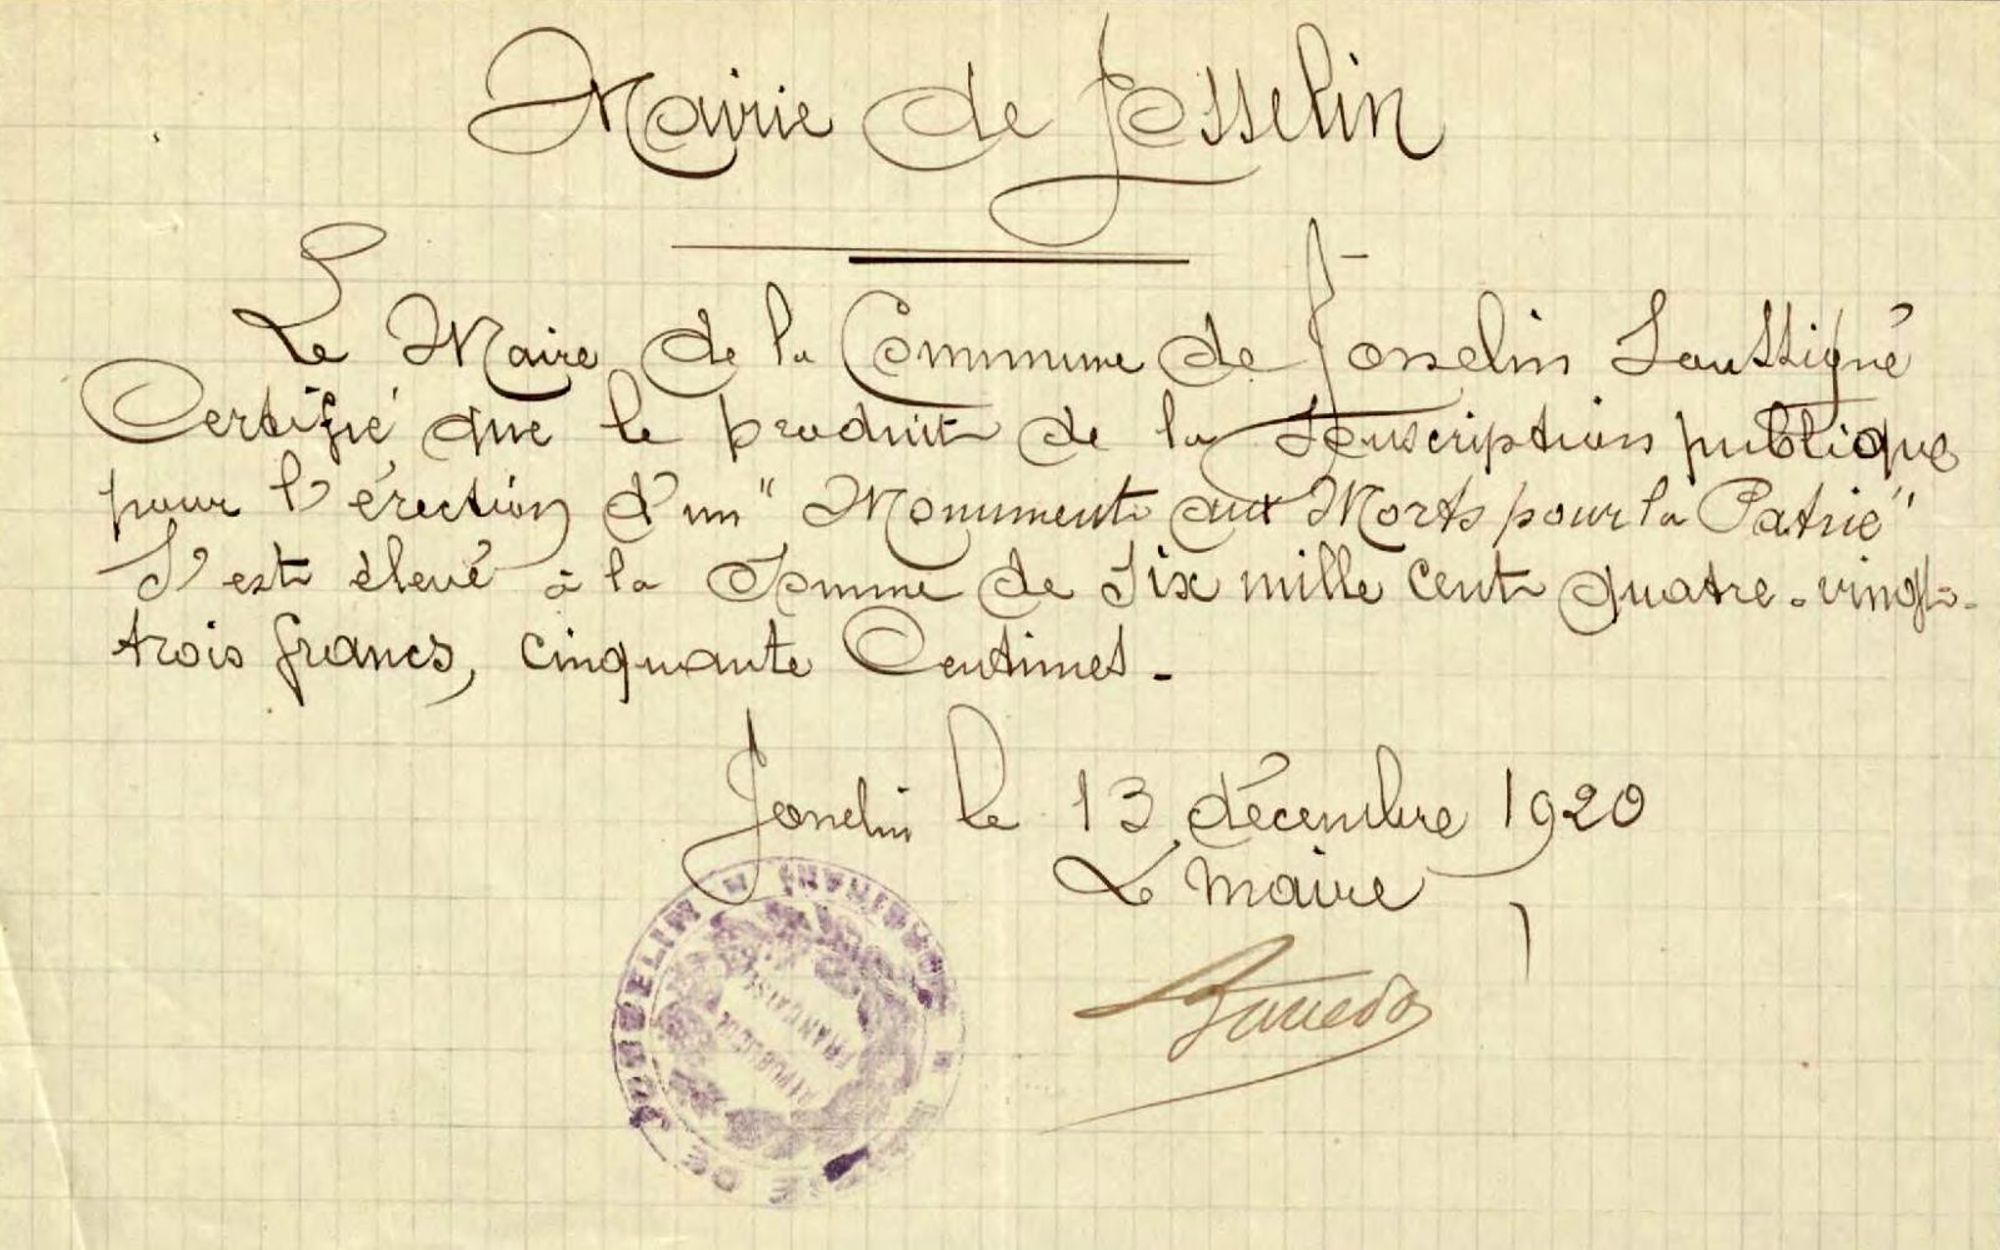 Mairie de Josselin
Le Maire de la Commune de Josselin Soussigné
Certifié que le produit de la Souscription publique
pour l'érection d'un "Monument aux Morts pour la Patrie"
S'est élevé à la Somme de Six mille cent quatre-vingt-
trois francs, cinquante Centimes.
Josselin le 13 décembre 1920
Le maire
DE JOSSELIN (MORBIHAN)
RÉPUBLIQUE
FRANÇAISE